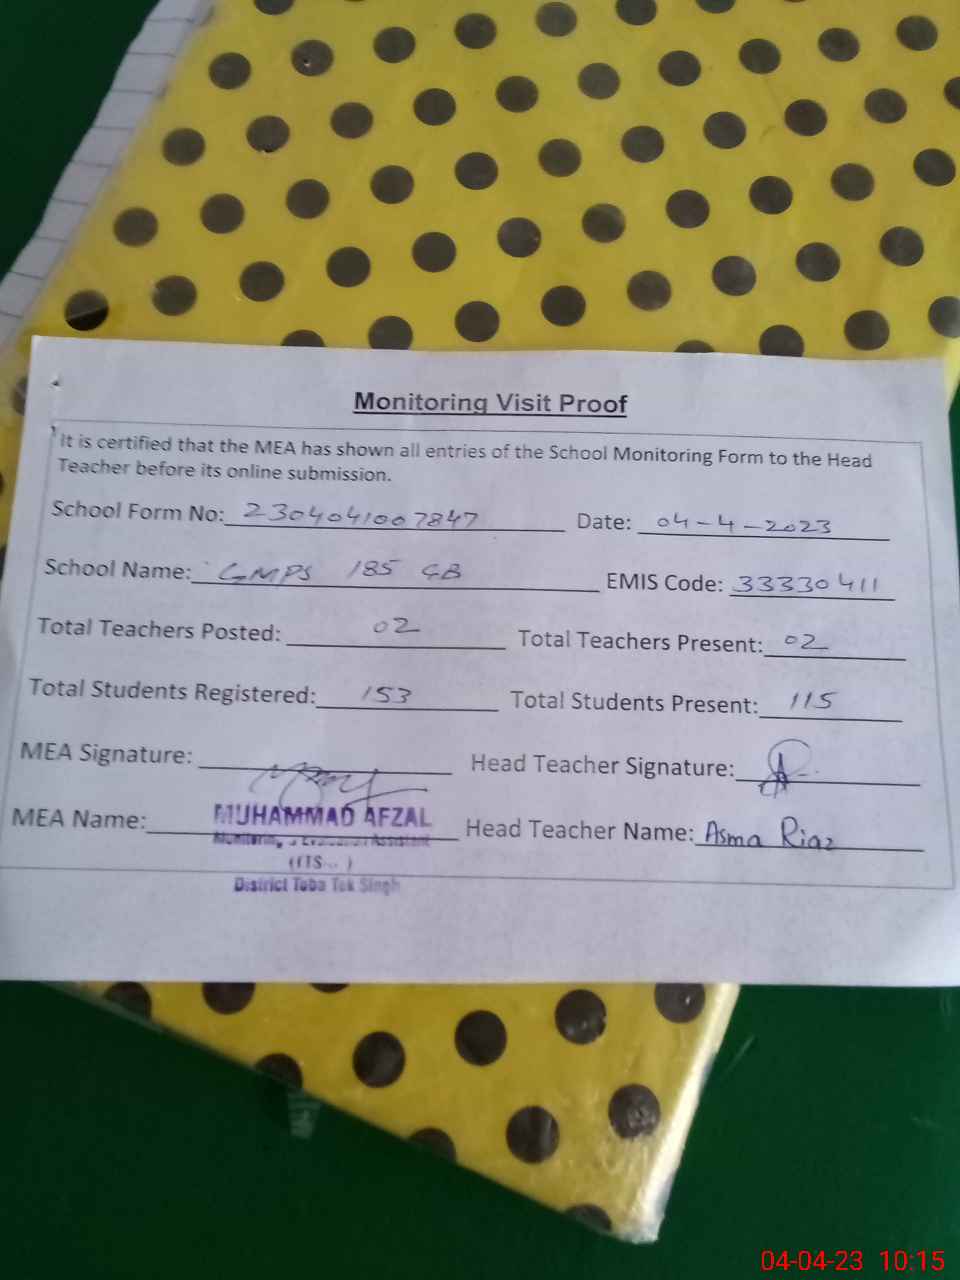 Monitoring Visit Proof
It is certified that the MEA has shown all entries of the School Monitoring Form to the Head
Teacher before its online submission.
School Form No: 2304041007847 Date: 04-4-2023
School Name: GMPS 185 GB EMIS Code: 33330411
Total Teachers Posted: 02 Total Teachers Present: 02
Total Students Registered: 153 Total Students Present: 115
MEA Signature: Head Teacher Signature:
MEA Name: MUHAMMAD AFZAL Head Teacher Name: Asma Riaz
Monitoring & Evaluation Assistant
District Toba Tek Singh
04-04-23 10:15